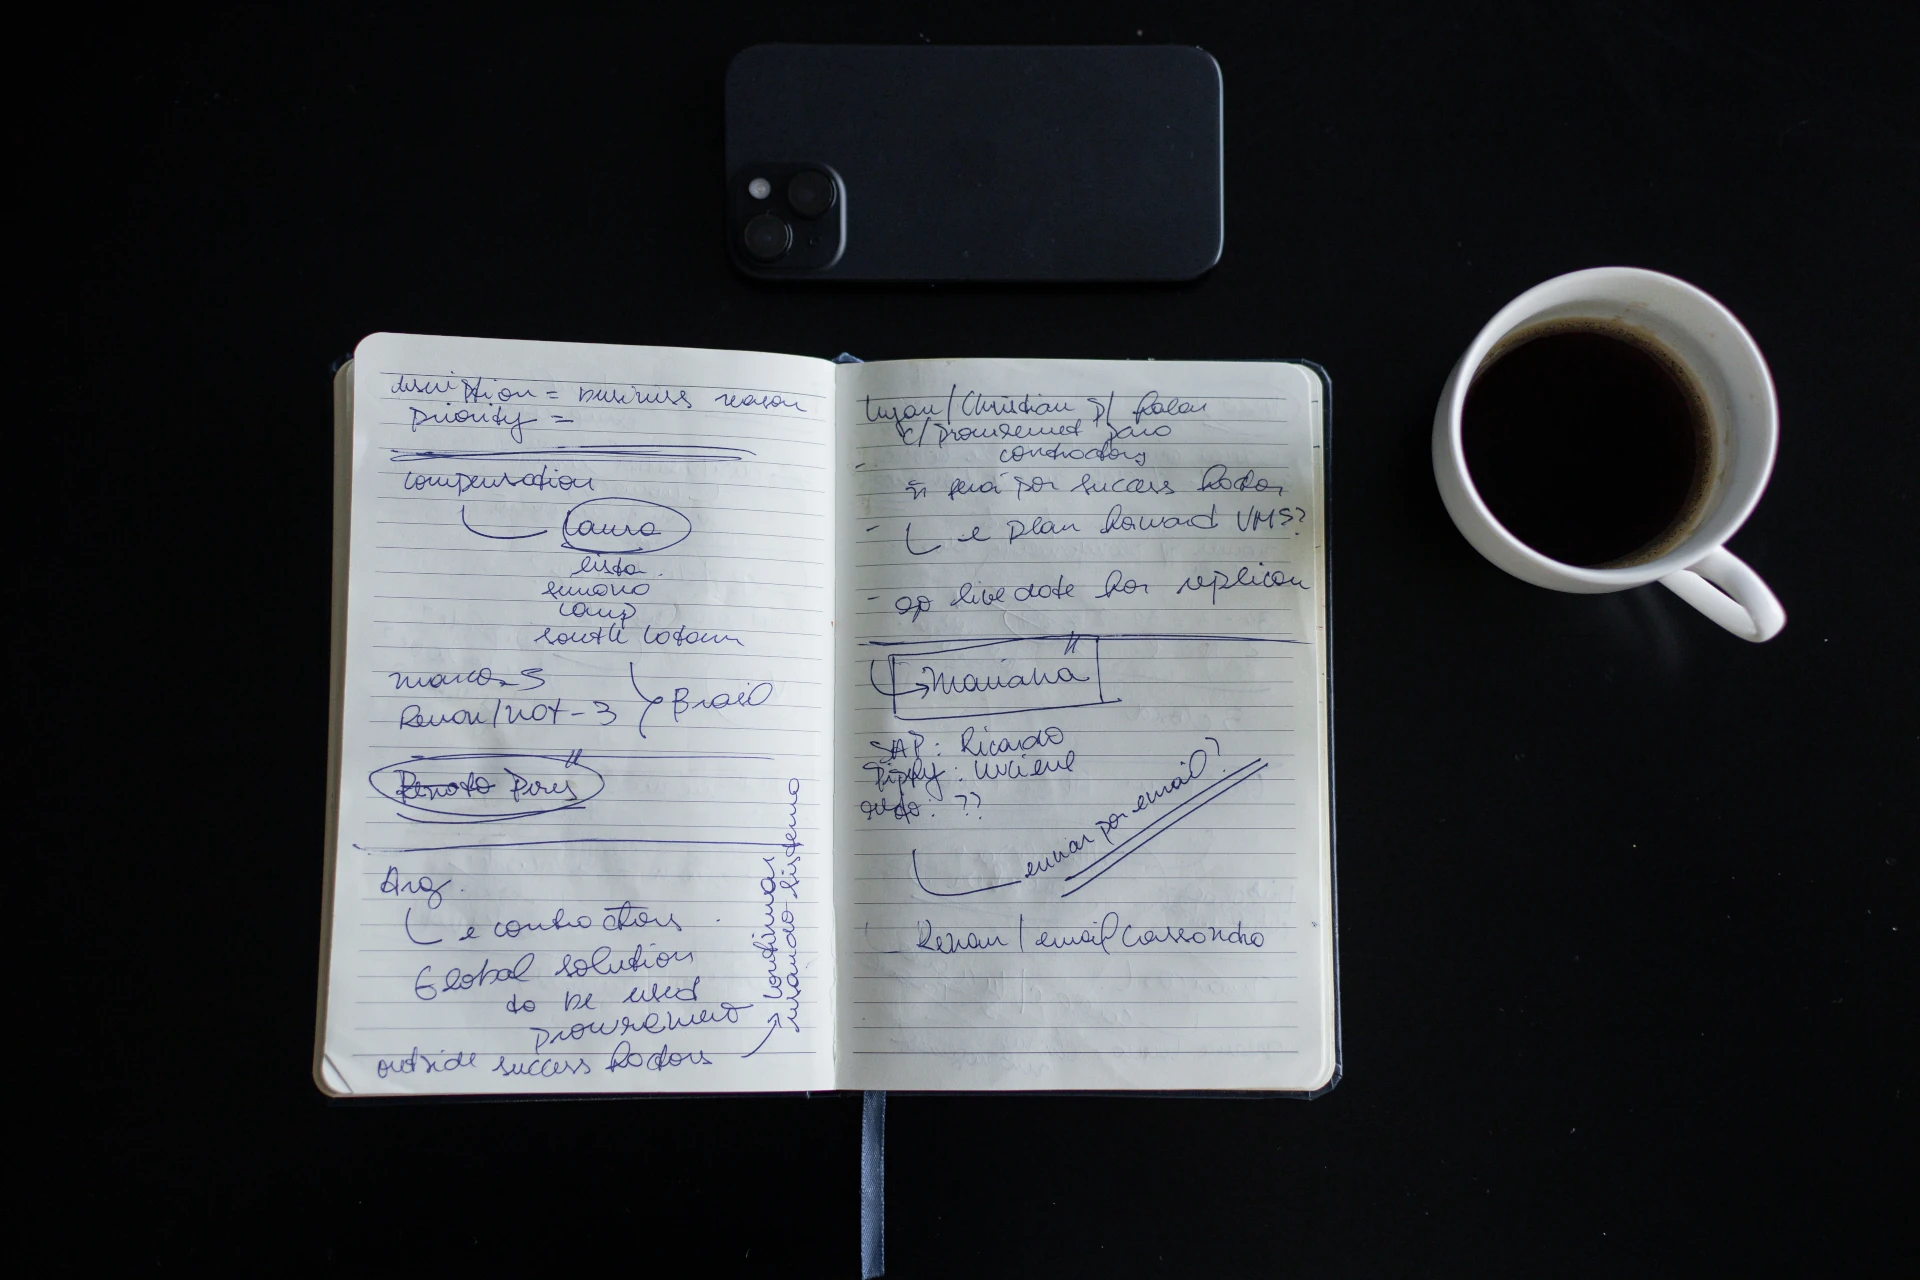 description = business reason
priority =
compensation
Laura
lista
semana
camp
south latam
marco - 5
Renan/not - 3 Brasil
Renato Pires
Arg.
e contractors
Global solution
to be used
procurement
outside success factors
continuar
usando sistema
/Christian p/ falar
c/ procurement para
contractors
será por success factor
e plan forward VMS?
- go live date for replicon
Mariana
SAP: Ricardo
: Luciene
: ??
enviar por email?
Renan / email Cassandra